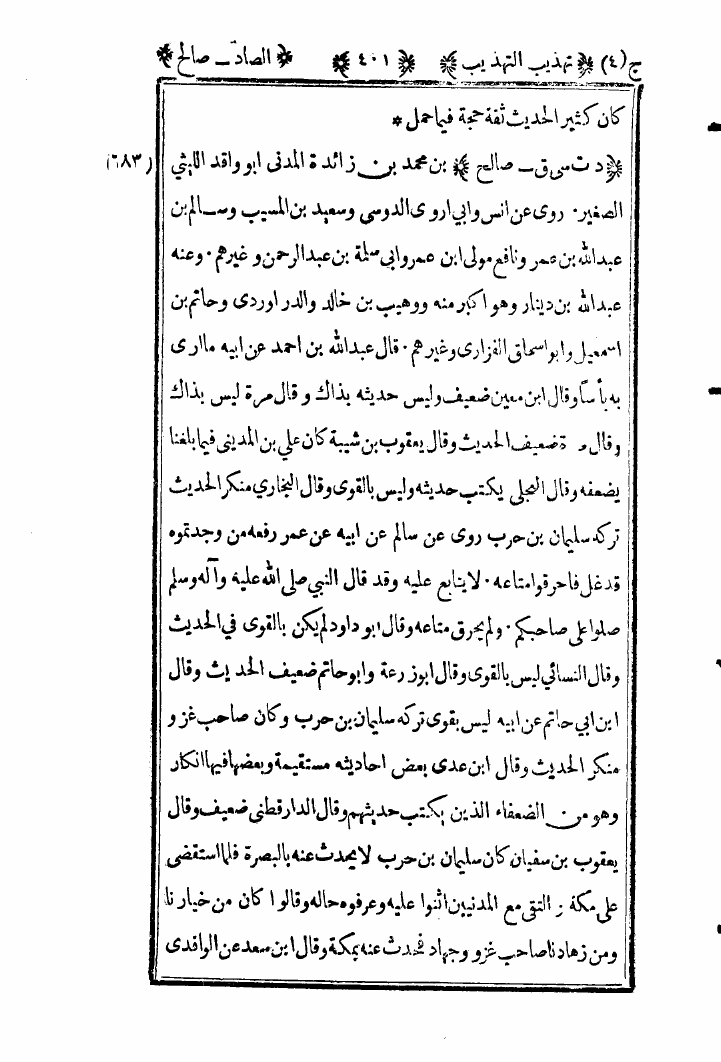 ج (٤) ﴿ تهذيب التهذيب ﴾ ﴿ ٤٠١ ﴾ ﴿ الصاد ــ صالح ﴾
كان كثير الحديث ثقة حجة فيما حمل *
﴿ د ت سى ق ــ صالح ﴾ بن محمد بن زائدة المدنى ابو واقد الليثي (٦٨٣)
الصغير٠ روى عن انس وابي اروى الدوسي وسعيد بن المسيب وسالم بن
عبدالله بن عمر ونافع مولى ابن عمر وابي سلمة بن عبدالرحمن و غيرهم ٠ وعنه
عبدالله بن دينار وهو اكبر منه ووهيب بن خالد والدر اوردى وحاتم بن
اسمعيل وابو اسحاق الفزارى وغيرهم ٠ قال عبدالله بن احمد عن ابيه ماارى
به بأساً وقال ابن معين ضعيف وليس حديثه بذاك و قال مرة ليس بذاك
وقال مرة ضعيف الحديث وقال يعقوب بن شيبة كان علي بن المديني فيما بلغنا
يضعفه وقال العجلى يكتب حديثه وليس بالقوى وقال البخاري منكر الحديث
تركه سليمان بن حرب روى عن سالم عن ابيه عن عمر رفعه من وجدتموه
قدغل فاحرقوا متاعه ٠ لا يتابع عليه وقد قال النبي صلى الله عليه وآله وسلم
صلوا على صاحبكم ٠ ولم يحرق متاعه وقال ابو داود لم يكن بالقوى في الحديث
وقال النسائي ليس بالقوى وقال ابوزرعة وابوحاتم ضعيف الحديث وقال
ابن ابي حاتم عن ابيه ليس بقوى تركه سليمان بن حرب وكان صاحب غزو
منكر الحديث وقال ابن عدى بعض احاديثه مستقيمة وبعضها فيها انكار
وهو من الضعفاء الذين يكتب حديثهم وقال الدارقطنى ضعيف وقال
يعقوب بن سفيان كان سليمان بن حرب لا يحدث عنه بالبصرة فلما استقضى
على مكة و التقى مع المدنيين اثنوا عليه وعرفوه حاله وقالوا كان من خيار نا
ومن زهادنا صاحب غزو وجهاد فحدث عنه بمكة وقال ابن سعد عن الواقدى